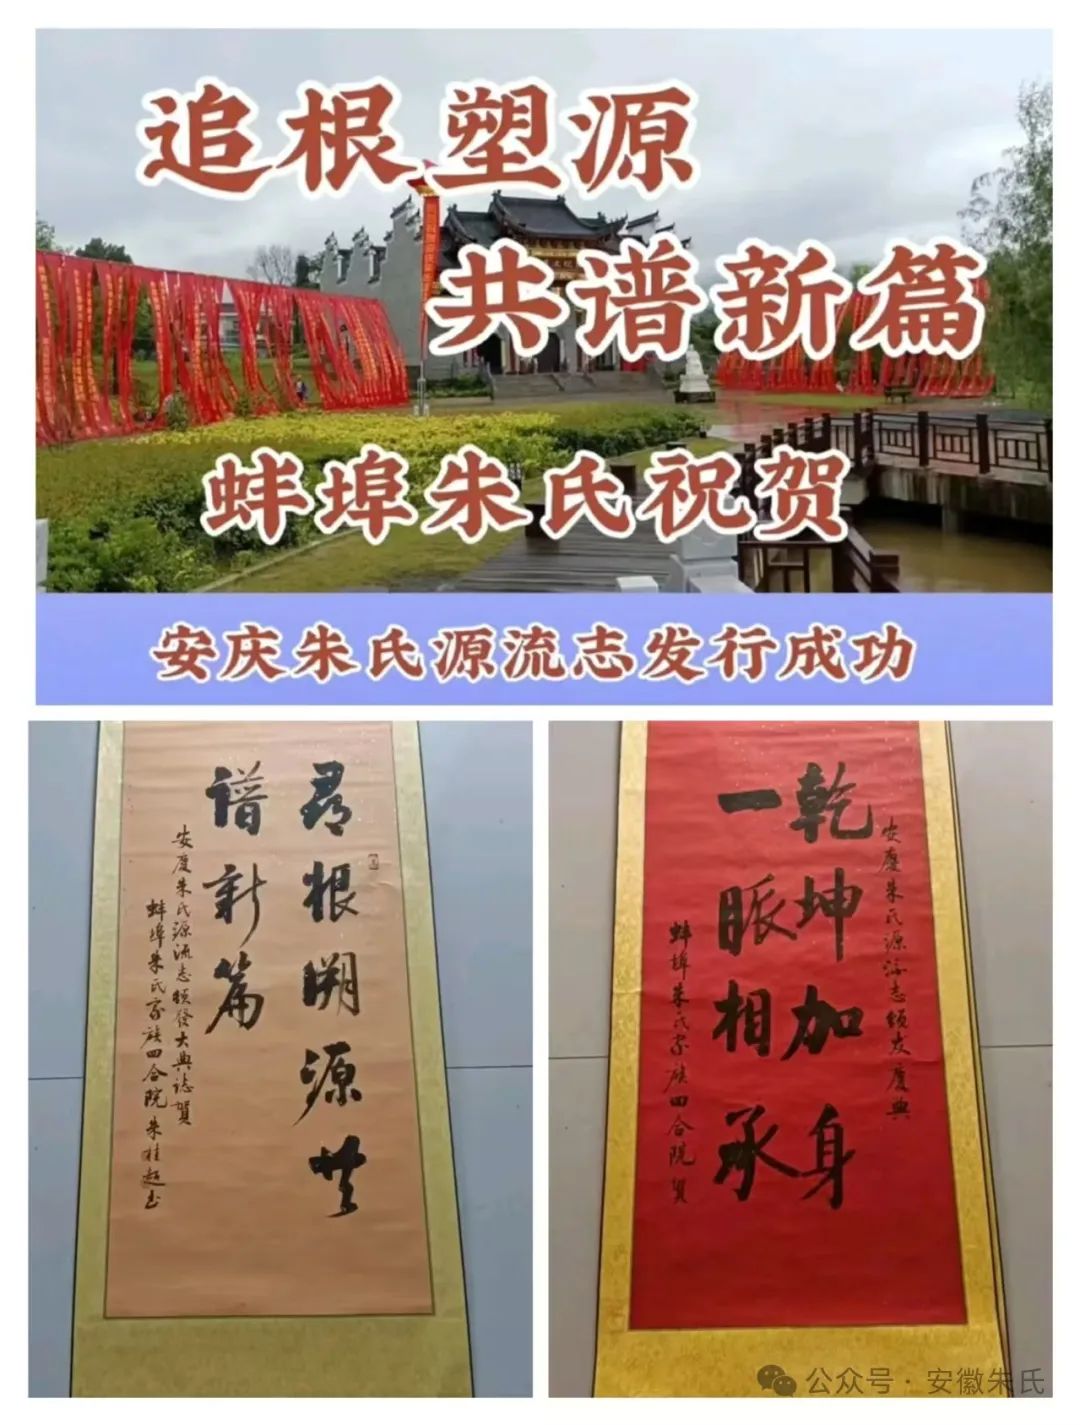 追根塑源
共谱新篇
蚌埠朱氏祝贺
安庆朱氏源流志发行成功
尋根溯源共
譜新篇
安慶朱氏源流志頒發大典誌賀
蚌埠朱氏家族四合院朱桂超书
安慶朱氏源流志颁发慶典
乾坤加身
一脈相承
蚌埠朱氏家族四合院賀
公众号 · 安徽朱氏